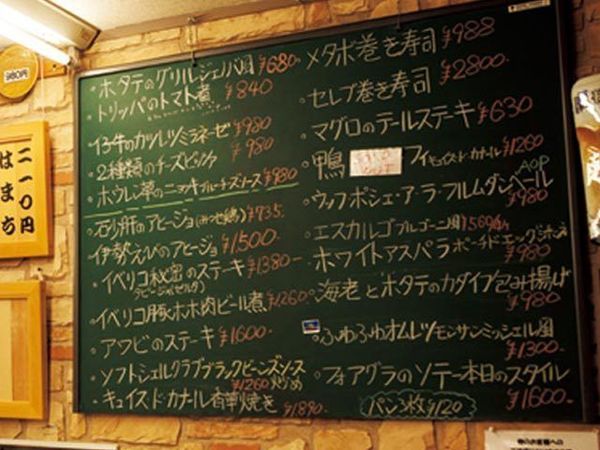 980円
二一〇円
はまち
・ホタテのグリルジェノバ風 ¥680
・トリッパのトマト煮 ¥840
・仔牛のカツレツミラネーゼ ¥980
・2種類のチーズピッツァ ¥980
・ホウレン草のニョッキブルーチーズソース ¥980
・砂肝のアヒージョ ¥735
・伊勢えびのアヒージョ ¥1500
・イベリコ秘密のステーキ ¥1380
・イベリコ豚ホホ肉ビール煮 ¥1260
・アワビのステーキ ¥1600
・ソフトシェルクラブブラックビーンズソース
¥1260 炒め
・キュイスド・カナール香草焼き ¥1890
・メタボ巻き寿司 ¥988
・セレブ巻き寿司 ¥2800
・マグロのテールステーキ ¥630
・鴨 フィ キュイスド・カナール ¥1260
・ウッフポシェ・ア・ラ・フルムダンベール AOP
¥980
・エスカルゴブルゴーニュ風 ¥1560
・ホワイトアスパラ ポーチドエッグ
¥980
・海老とホタテのカダイフ包み揚げ
¥980
・ふわふわオムレツモンサンミッシェル風
¥1300
・フォアグラのソテー本日のスタイル
¥1600
パン3枚 ¥120